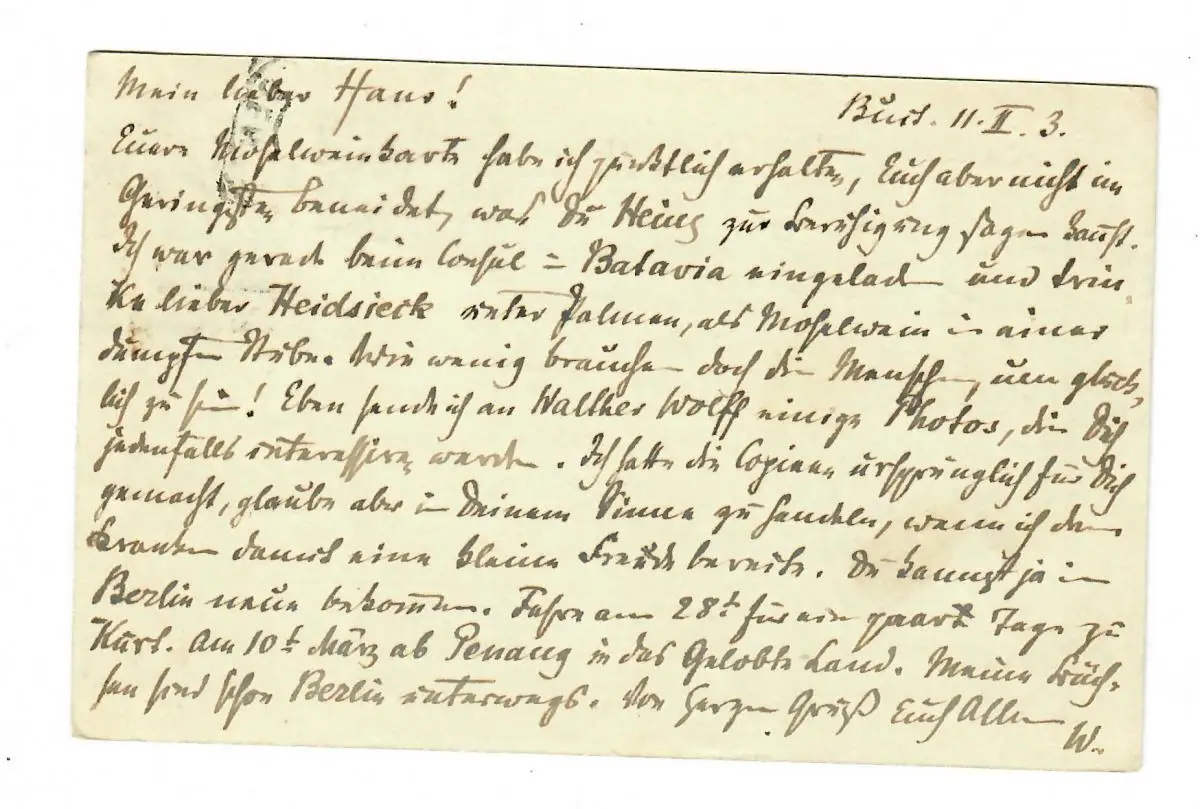 Mein lieber Hans!
Buit. 11. II. 3.
Euere Moselweinkarte habe ich pünktlich erhalten, Euch aber nicht im
Geringsten beneidet, was Du Heinz zur Beruhigung sagen kannst.
Ich war gerade beim Consul = Batavia eingeladen und trin-
ke lieber Heidsieck unter Palmen, als Moselwein in einer
dumpfen Stube. Wie wenig brauchen doch die Menschen, um glück-
lich zu sein! Eben sende ich an Walther Wolff einige Photos, die Dich
jedenfalls interessiren werden. Ich hatte die Copieen ursprünglich für Dich
gemacht, glaube aber in Deinem Sinne zu handeln, wenn ich dem
Kranken damit eine kleine Freude bereite. Du kannst ja in
Berlin neue bekommen. Fahre am 28t für ein paar Tage zu
Kurt. Am 10t März ab Penang in das Gelobte Land. Meine
sen sind schon Berlin unterwegs. Von Herzen Gruß Euch Allen
W.